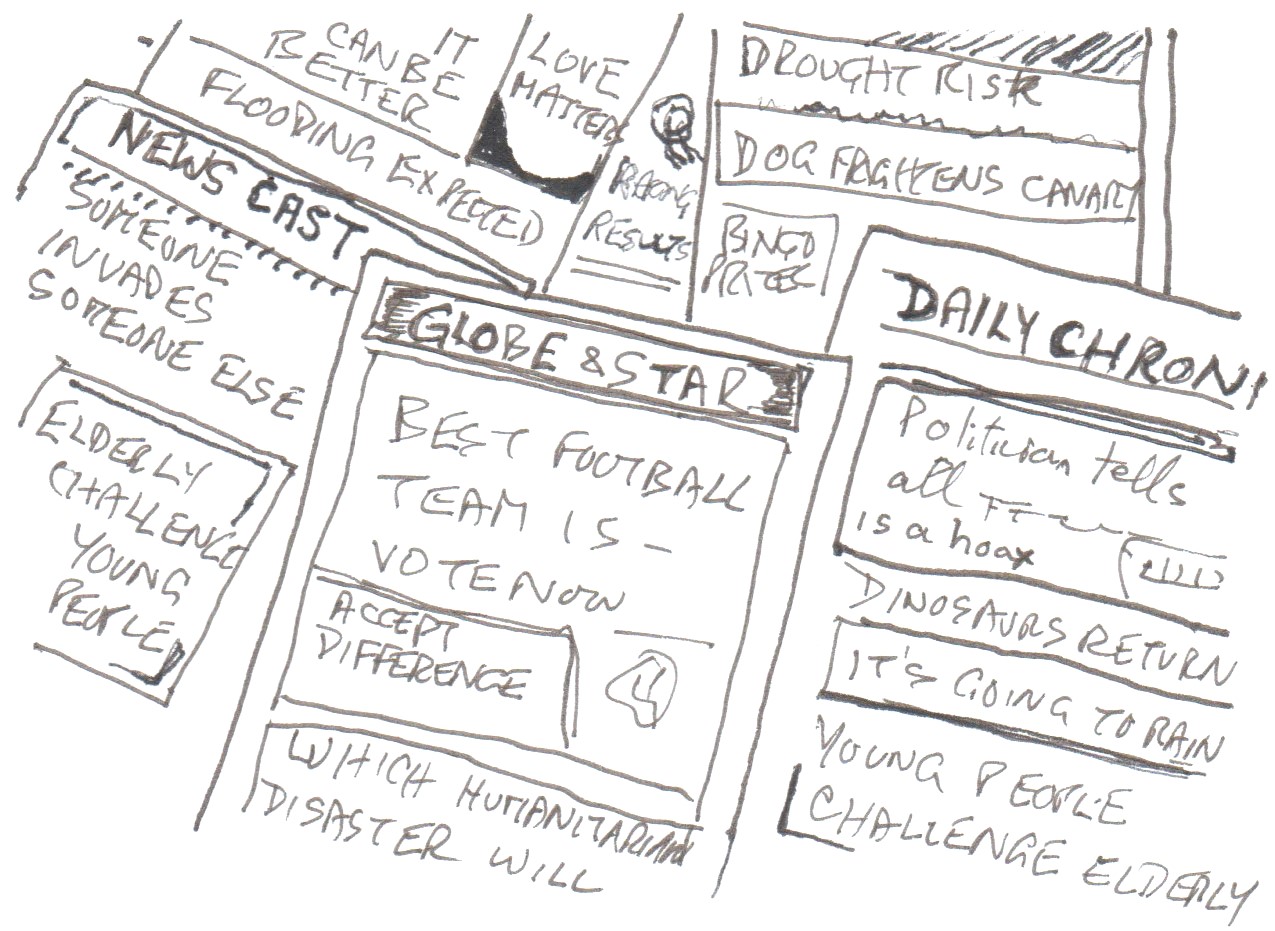 IT
CAN BE
BETTER
FLOODING EXPECTED
LOVE
MATTERS
RACING
RESULTS
DROUGHT RISK
DOG FRIGHTENS CANARY
BINGO
PRIZES
NEWS CAST
SOMEONE
INVADES
SOMEONE ELSE
ELDERLY
CHALLENGE
YOUNG
PEOPLE
GLOBE & STAR
BEST FOOTBALL
TEAM IS -
VOTE NOW
ACCEPT
DIFFERENCE
4
WHICH HUMANITARIAN
DISASTER WILL
DAILY CHRONI
Politician tells
all
is a hoax
DINOSAURS RETURN
IT'S GOING TO RAIN
YOUNG PEOPLE
CHALLENGE ELDERLY